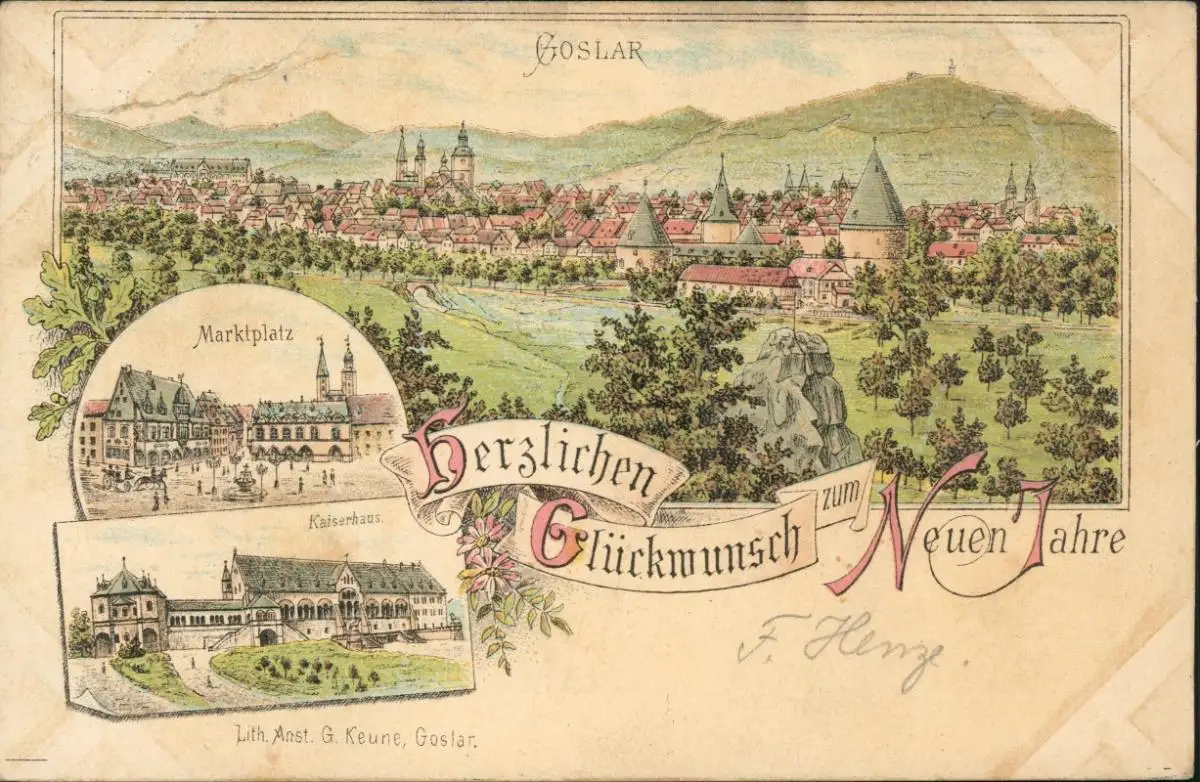 GOSLAR
Marktplatz
Kaiserhaus.
Herzlichen
Glückwunsch
zum
Neuen Jahre
F. Henze.
Lith. Anst. G. Keune, Goslar.